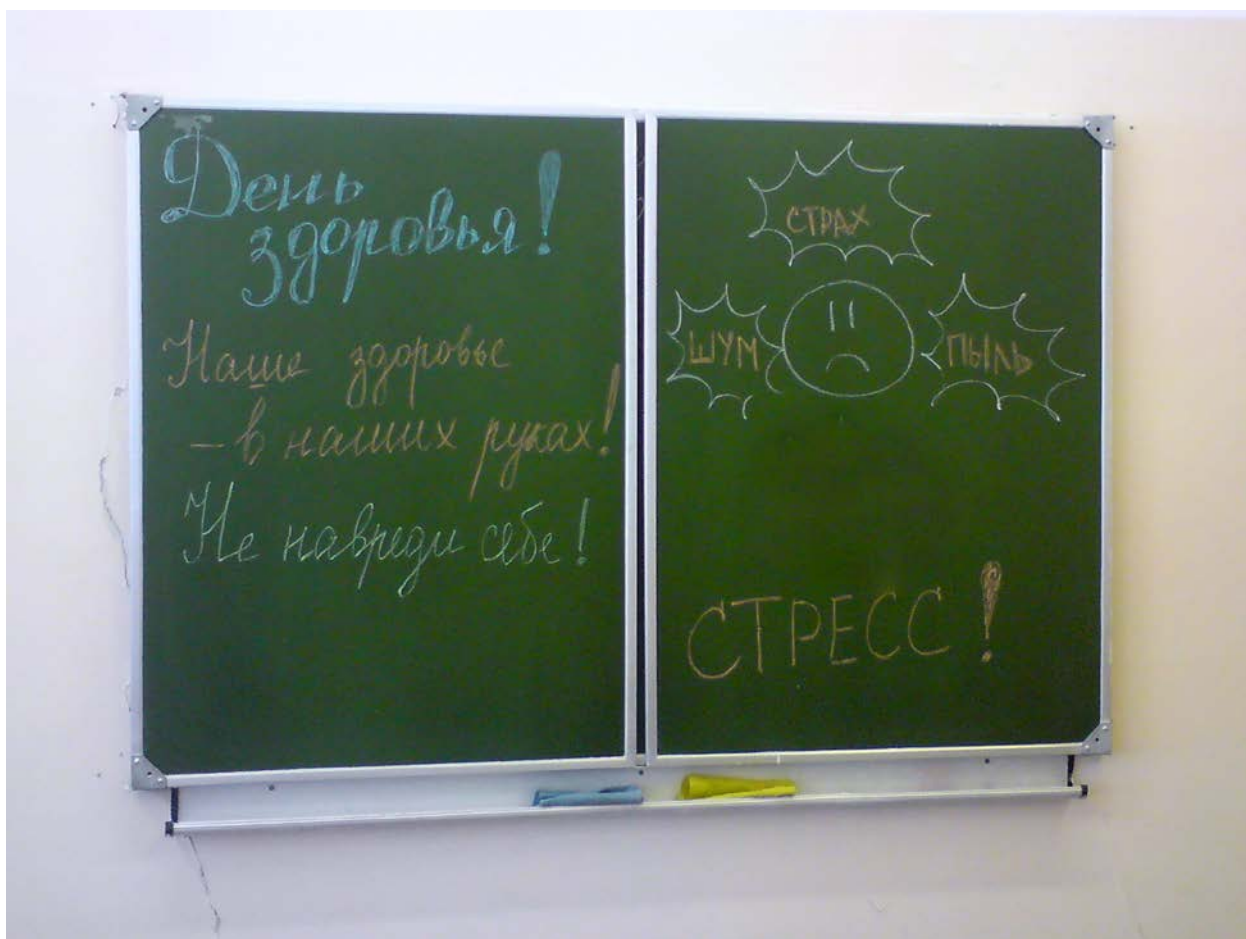 День
здоровья!
Наше здоровье
– в наших руках!
Не навреди себе!
СТРАХ
ШУМ
ПЫЛЬ
СТРЕСС!